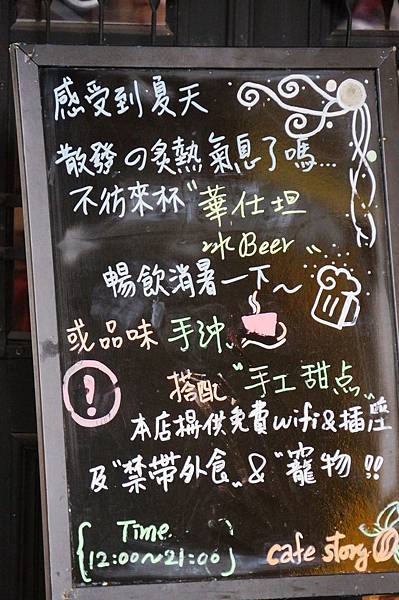 感受到夏天
散發の炙熱氣息了嗎...
不彷來杯"華仕坦
冰Beer"
暢飲消暑一下～
或品味 手沖
搭配 "手工甜点"
!
本店提供免費wifi&插座
及"禁帶外食"&"寵物!!
{Time.
12:00～21:00}
cafe story